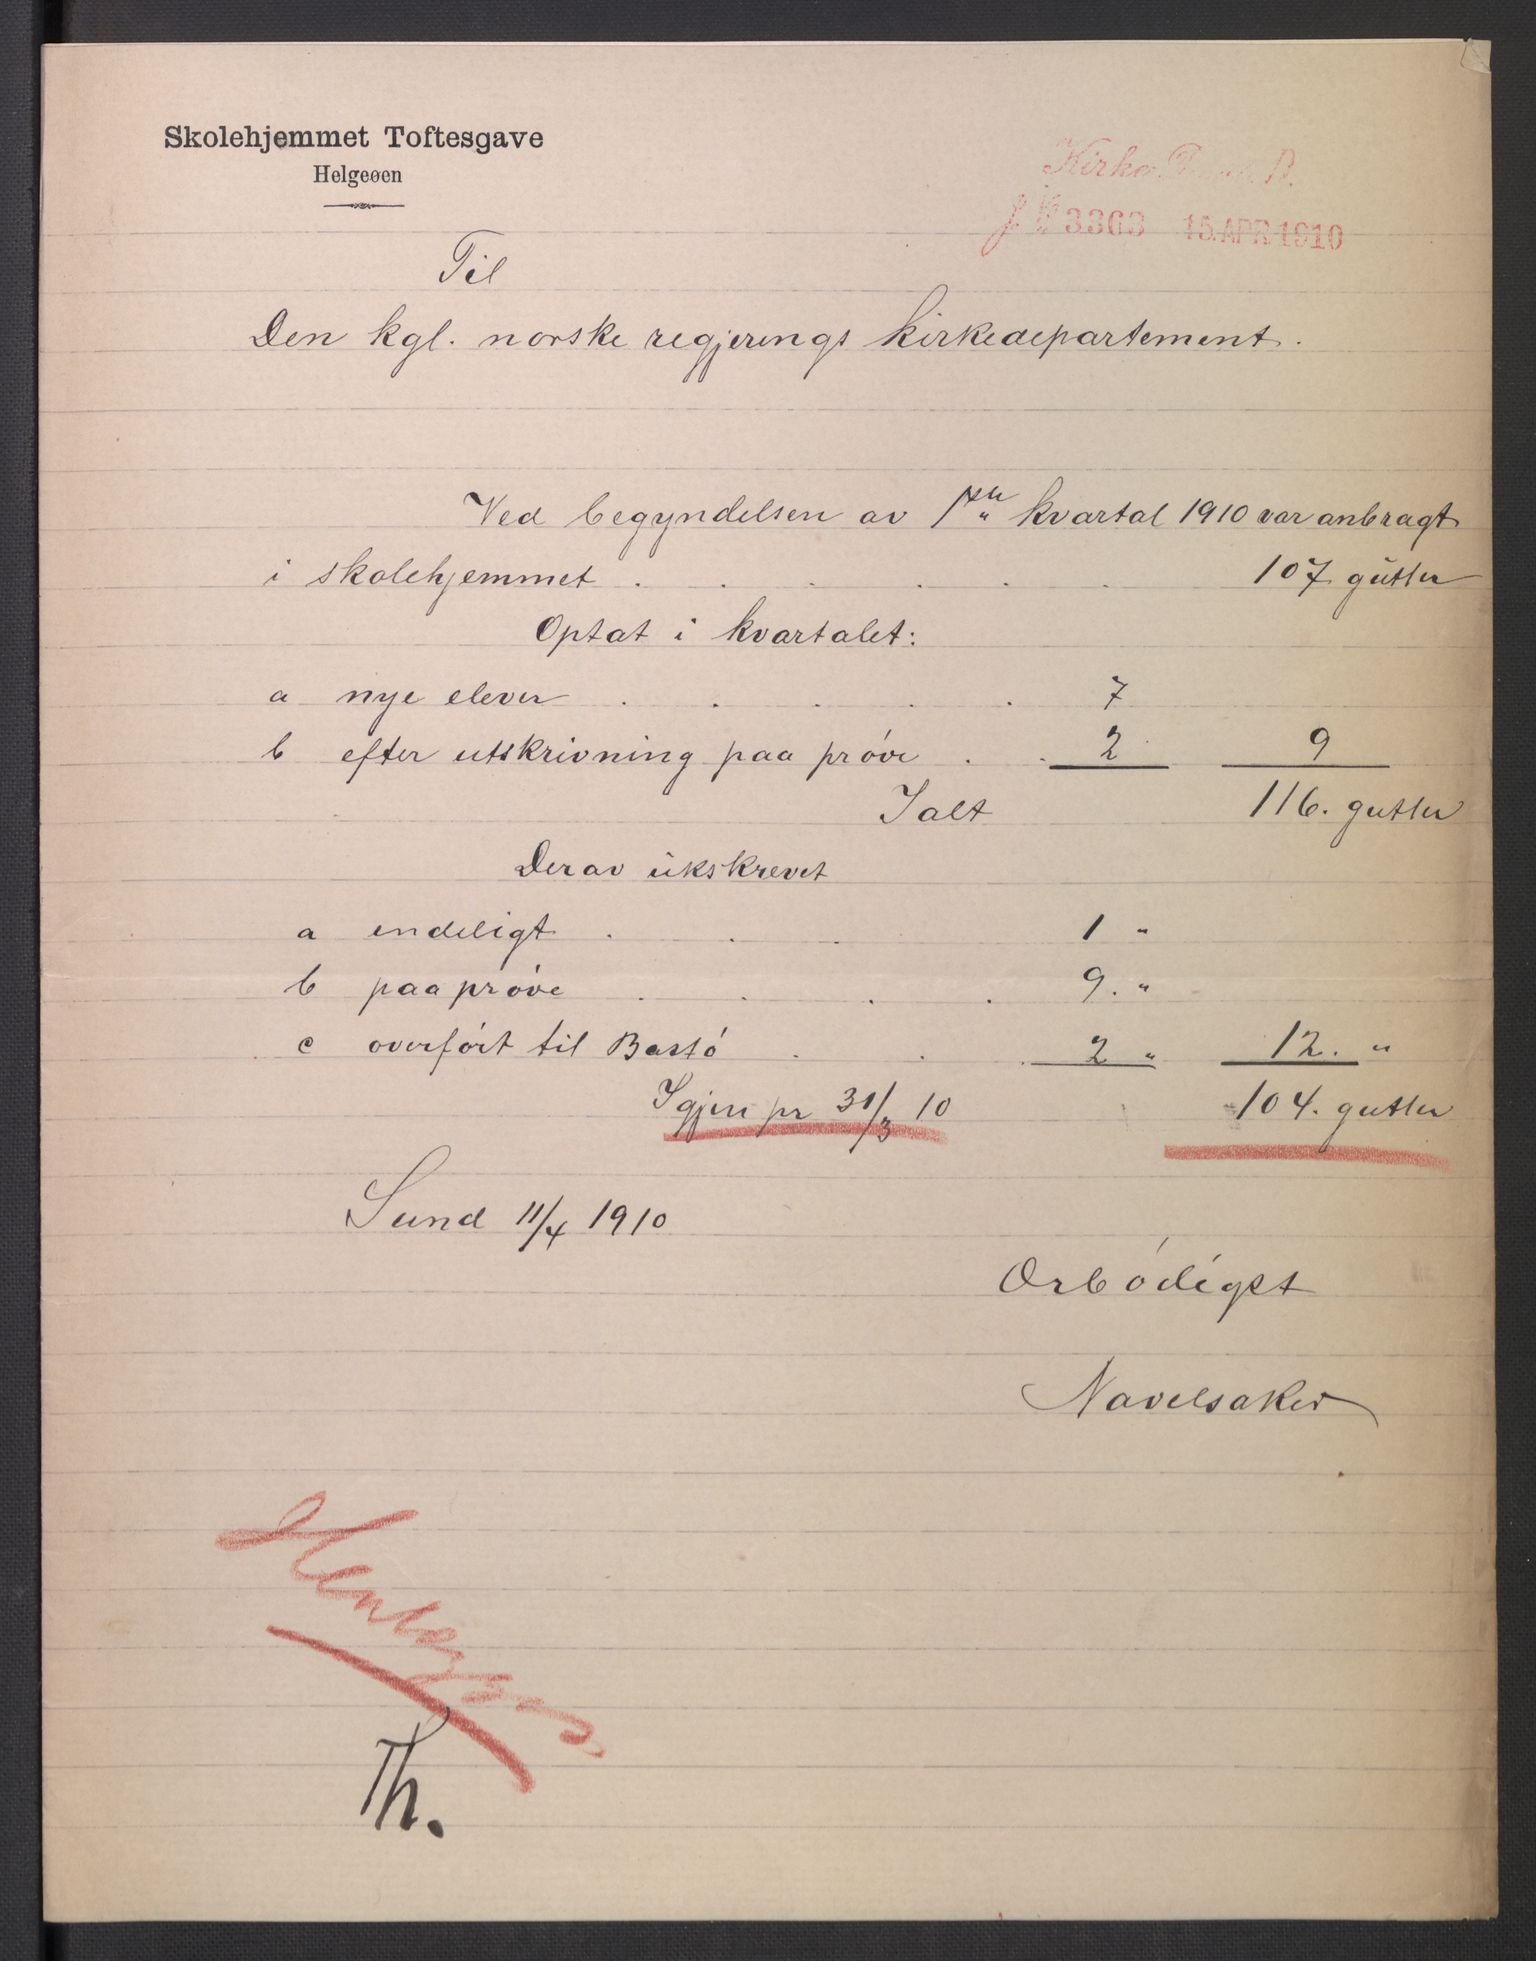 Skolehjemmet Toftesgave
Helgeøen
Kirke D.
J. № 3363 15. APR 1910
Til
Den kgl. norske regjerings kirkedepartement.
Ved begyndelsen av 1ste kvartal 1910 var anbragt
i skolehjemmet . . . . . . 107 gutter
Optat i kvartalet:
a nye elever . . . . . 7
b efter utskrivning paa prøve . . 2 9
Ialt 116. gutter
Derav utskrevet
a endeligt . . . 1 "
b paa prøve . . . . 9. "
c overført til Bastö . . . 2 " 12. "
Igjen pr 31/3 10 104. gutter
Sund 11/4 1910
Ærbödigst
Navelsaker
Henlægges
Th.